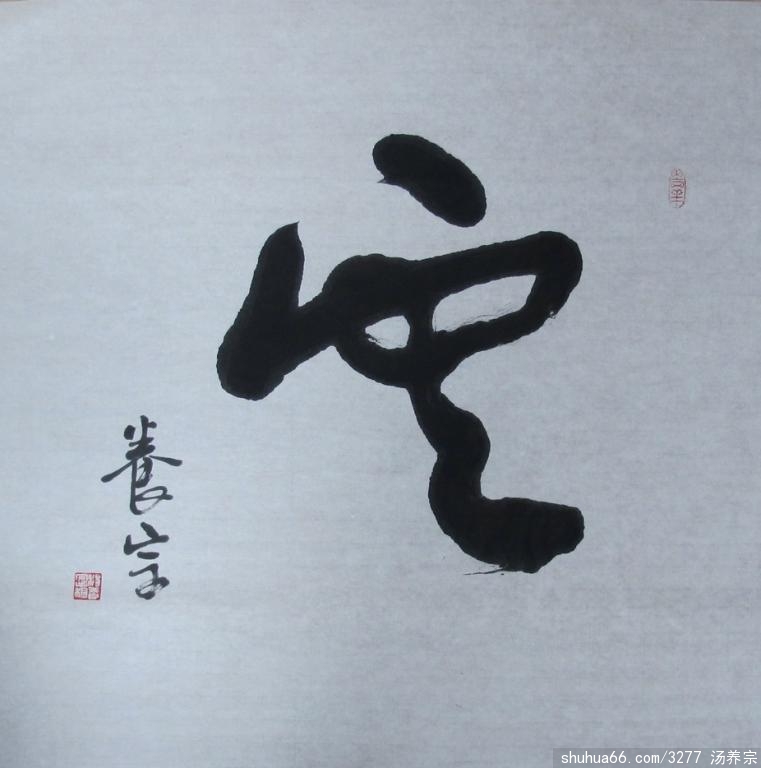 空
養宗
shuhua66.com/3277 汤养宗